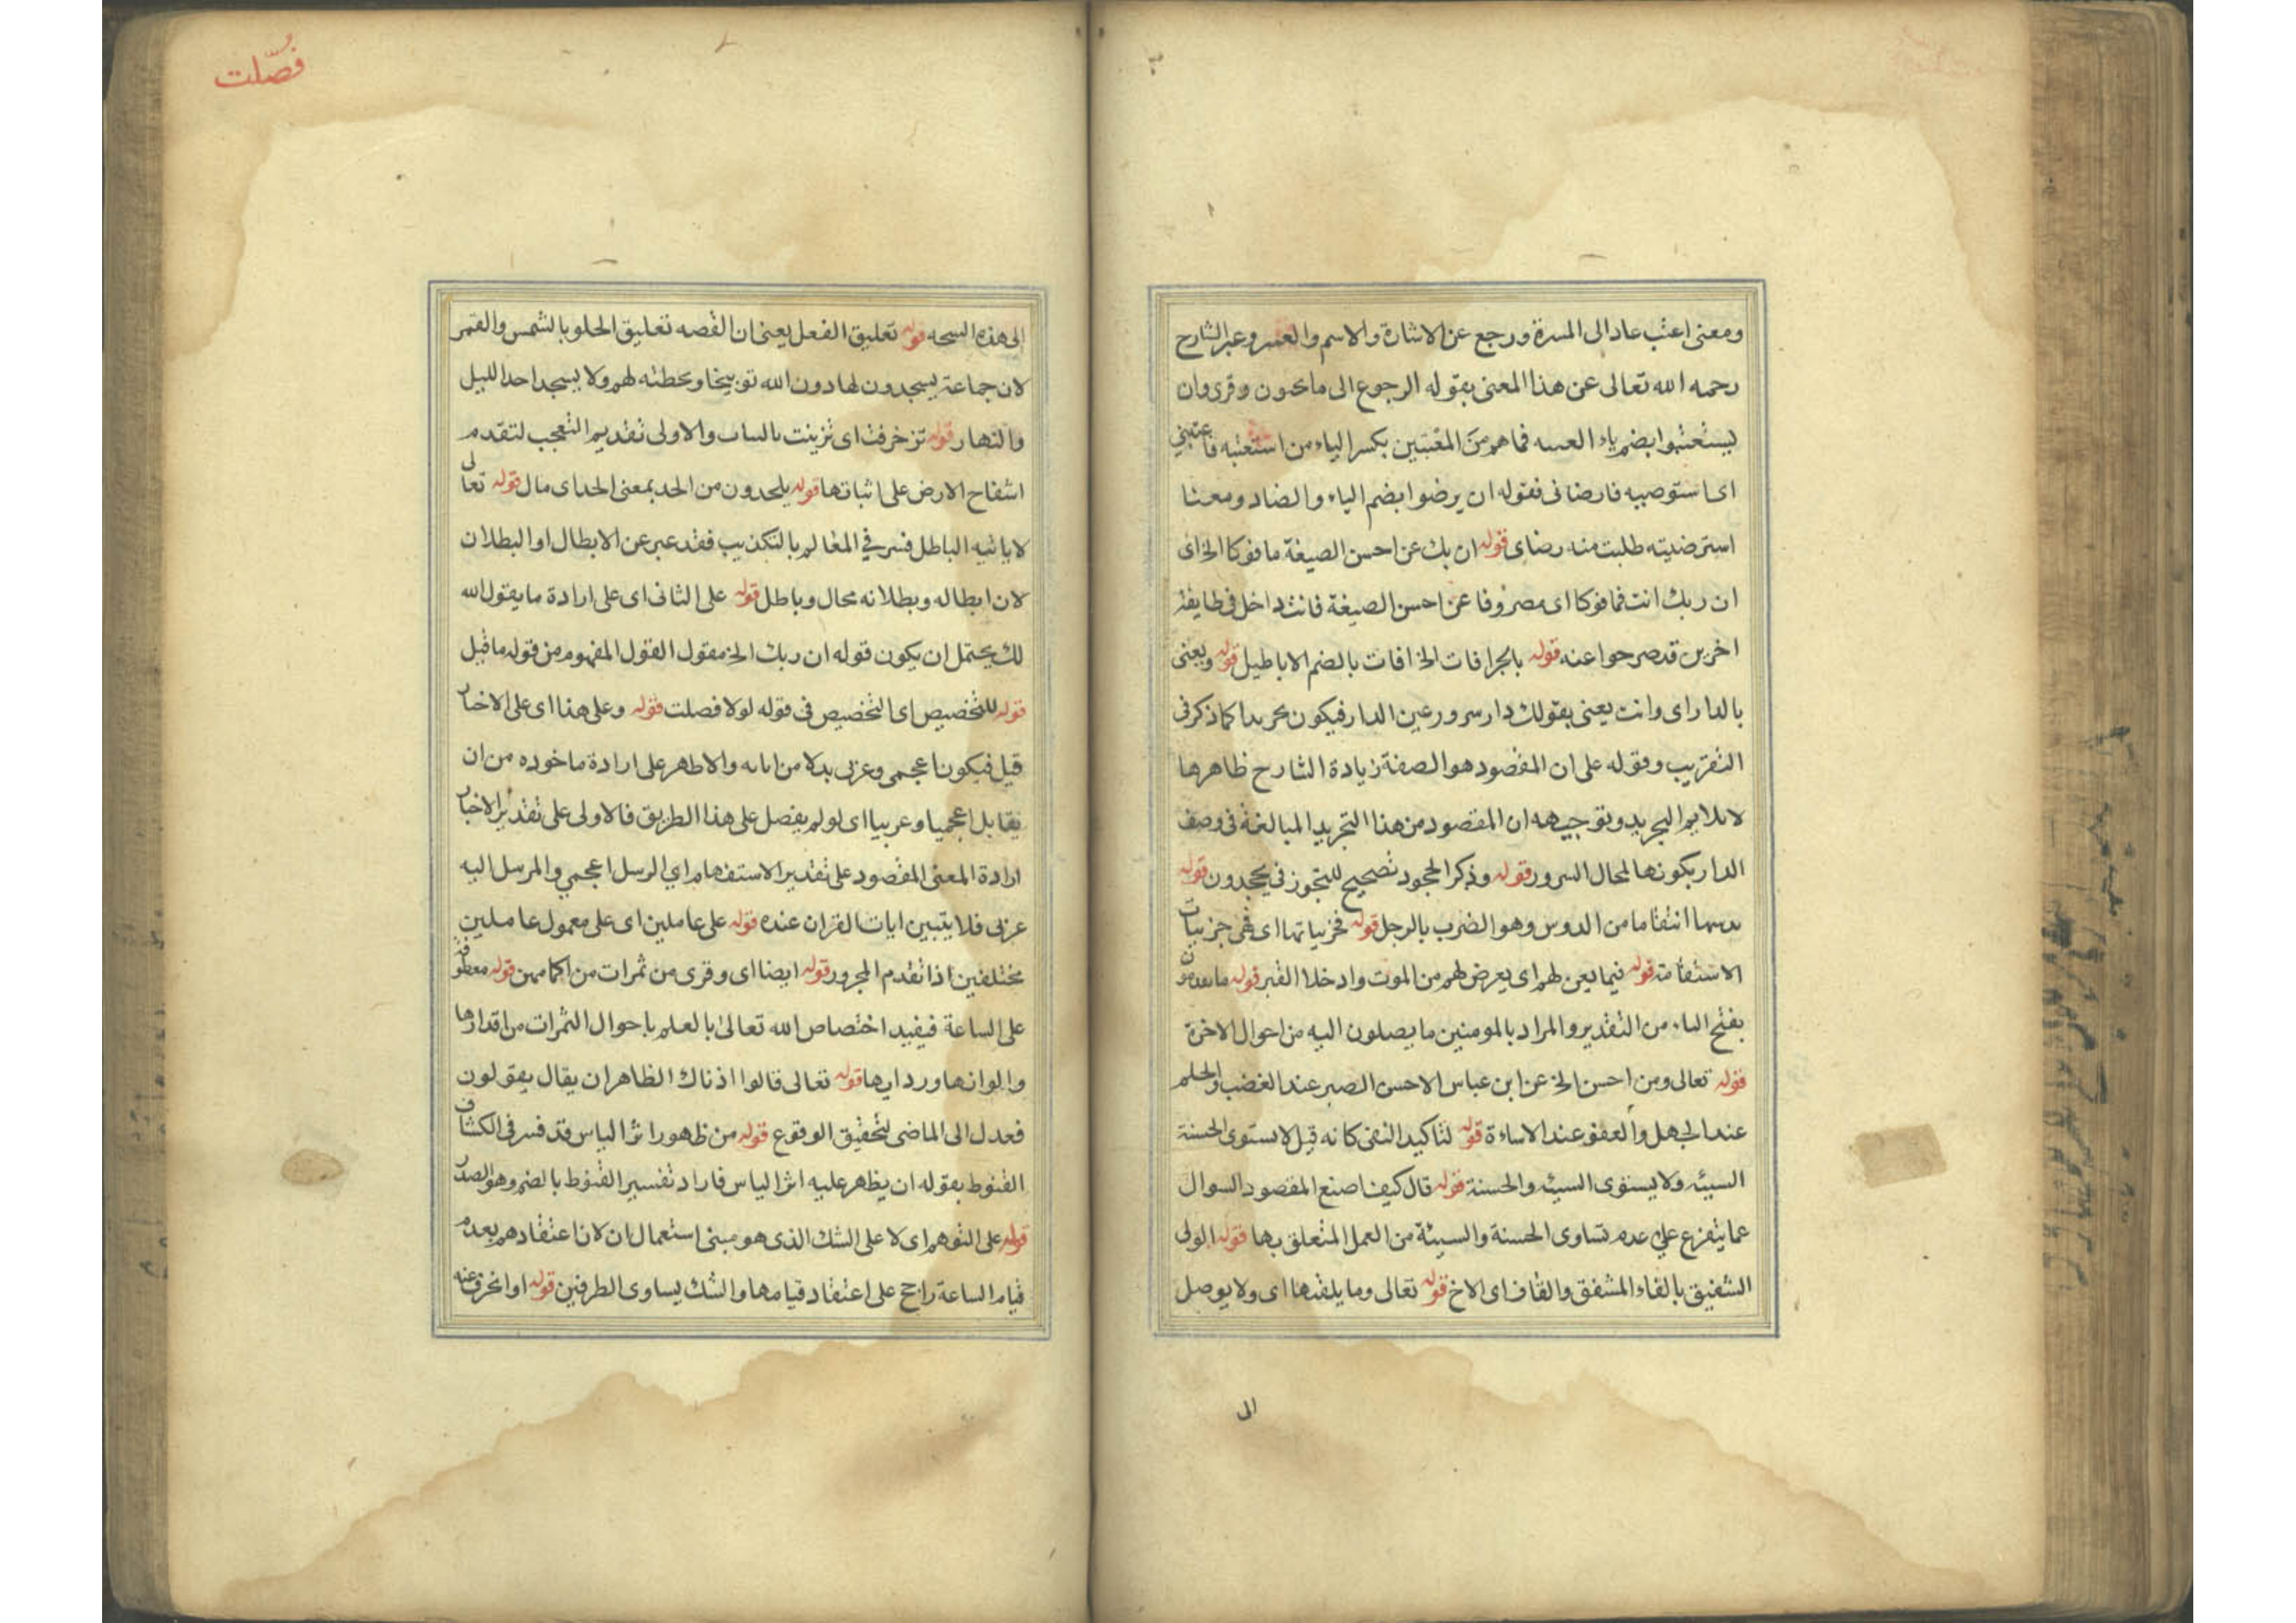 ومعنى اعتب عاد الى المسرة ورجع عن الاشارة والاسم وعبر الشارح
رحمه الله تعالى عن هذا المعنى بقوله الرجوع الى ما يحبون وقرى وان
يستعتبوا بضم ياء فما هم من المعتبين بكسر الياء من استعتبه فاعتبني
اى فارضانى فقوله ان يرضوا بضم الياء والضاد ومعنا
استرضيته طلبت منه رضاى قوله ان بك عن احسن الصيغة مافوكا الخ اى
ان ربك انت فمافوكا اى مصروفا عن احسن الصيغة فانت داخل فى طايفة
اخرين قد صرحوا عنه قوله بالخرافات الخرافات بالضم الاباطيل قوله ويعنى
بالدار اى وانت يعنى بقولك دار سرور عين الدار فيكون تجريدا كما ذكر فى
التقريب وقوله على ان المقصود هو الصفة زيادة الشارح ظاهرها
لا يلايم التجريد وتوجيهه ان المقصود من هذا التجريد المبالغة فى وصف
الدار بكونها لمحال السرور قوله وذكر الجحود تصحيح للتجوز فى يجحدون قوله
انتقاما من الدوس وهو الضرب بالرجل قوله فجزياتها اى ففى جزييات
الاستقامة قوله فيما يعن لهم اى يعرض لهم من الموت وادخلا القبر قوله ما
بفتح الياء من التقدير والمراد بالمومنين ما يصلون اليه من احوال الاخرة
قوله تعالى ومن احسن الخ عن ابن عباس الاحسن الصبر عند الغضب والحلم
عند الجهل والعفو عند الاساءة قوله لتاكيد النفى كانه قيل لا يستوى الحسنة
السيئه ولا يستوى السيئه والحسنة قوله قال كيف اصنع المقصود السوال
عما يتفرع على عدم تساوى الحسنة والسيئة من العمل المتعلق بها قوله الولى
الشفيق بالفاء المشفق والقاف اى الاخ قوله تعالى وما يلقها اى ولا يوصل
الى
فُصّلت
الى هذه السجيه قوله تعليق الفعل يعنى ان القصه تعليق الخلق بالشمس والقمر
لان جماعة يسجدون لها دون الله توبيخا وتخطئه لهم ولا يسجد احد الليل
والنهار قوله تزخرفت اى تزينت بالنبات والاولى تقديم التعجب لتقدم
انتفاخ الارض على انباتها قوله يلحدون من الحد بمعنى لحد اى مال قوله تعالى
لا ياتيه الباطل فسر في المعالم بالتكذيب فقد عبر عن الابطال او البطلان
لان ابطاله وبطلانه محال وباطل قوله على الثانى اى على ارادة ما يقول الله
لك يحتمل ان يكون قوله ان ربك الخ مقول القول المفهوم من قوله ما قيل
قوله للتخصيص اى التخصيص فى قوله لولا فصلت قوله وعلى هذا اى على الاخبار
قيل فيكون اعجمى وعربى بدلا من اياته والاظهر على ارادة ماخوده من ان
يقابل اعجميا وعربيا اى لو لم يفصل على هذا الطريق فالاولى على تقدير الاخبار
ارادة المعنى المقصود على تقدير الاستفهام اي الرسل اعجمي والمرسل اليه
عربى فلا يتبين ايات القران عنده قوله على عاملين اى على معمول عاملين
مختلفين اذا تقدم المجرور قوله ايضا اى وقرى من ثمرات من اكمامهن قوله معطوف
على الساعة فيفيد اختصاص الله تعالى بالعلم باحوال الثمرات من اقدارها
والوانها قوله تعالى قالوا اذناك الظاهر ان يقال يقولون
فعدل الى الماضى لتحقيق الوقوع قوله من ظهور اثر الياس قد فسر فى الكشاف
القنوط بقوله ان يظهر عليه اثر الياس فاراد تفسير القنوط بالضم وهو المصدر
قوله على التوهم اى لا على الشك الذى هو مبنى استعمال ان لان اعتقادهم بعدم
قيام الساعة راجح على اعتقاد قيامها والشك يساوى الطرفين قوله او انحرف عنه